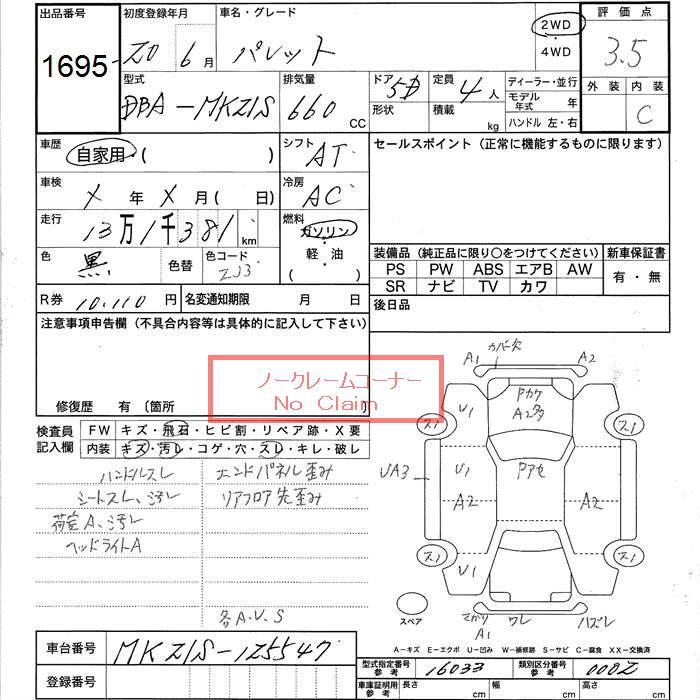 出品番号 初度登録年月 車名・グレード 2WD 4WD 評価点
1695 20 6月 パレット 3.5
型式 排気量 ドア 5D 定員 4人 ディーラー・並行 外装 内装
DBA-MK21S 660 CC 形状 積載 kg モデル年式 年 C
ハンドル 左・右
車歴 自家用・( ) シフト AT セールスポイント (正常に機能するものに限ります)
車検 X年X月( 日) 冷房 AC
走行 13万1千381km 燃料 ガソリン・軽油・( )
色 黒 色替 色コード ZJ3
装備品 (純正品に限り○をつけてください) 新車保証書
PS PW ABS エアB AW 有・無
SR ナビ TV カワ
R券 10,110円 名変通知期限 月 日 後日品
注意事項申告欄 (不具合内容等は具体的に記入して下さい)
ノークレームコーナー
No Claim
修復歴 有 〔箇所
検査員記入欄 FW キズ・飛石・ヒビ割・リペア跡・X要
内装 キズ・汚レ・コゲ・穴・スレ・キレ・破レ
ハンドルスレ エンドパネル歪み
シートスレ、汚レ リアフロア先歪み
荷室A、汚レ
ヘッドライトA
各A.U.S
A1 カバー欠 A2
U1 Pカケ A2多
ス1 ス1
UA3 U1 Pアセ
A2 A2
ス1 U1 ス1
スペア
マガリ A1 ワレ ハズレ
A-キズ E-エクボ U-凹み W-補修跡 S-サビ C-腐食 XX-交換済
車台番号 MK21S-125547
型式指定番号 参考 16033 類別区分番号 参考 0002
登録番号
車庫証明用 参考 長さ cm 幅 cm 高さ cm